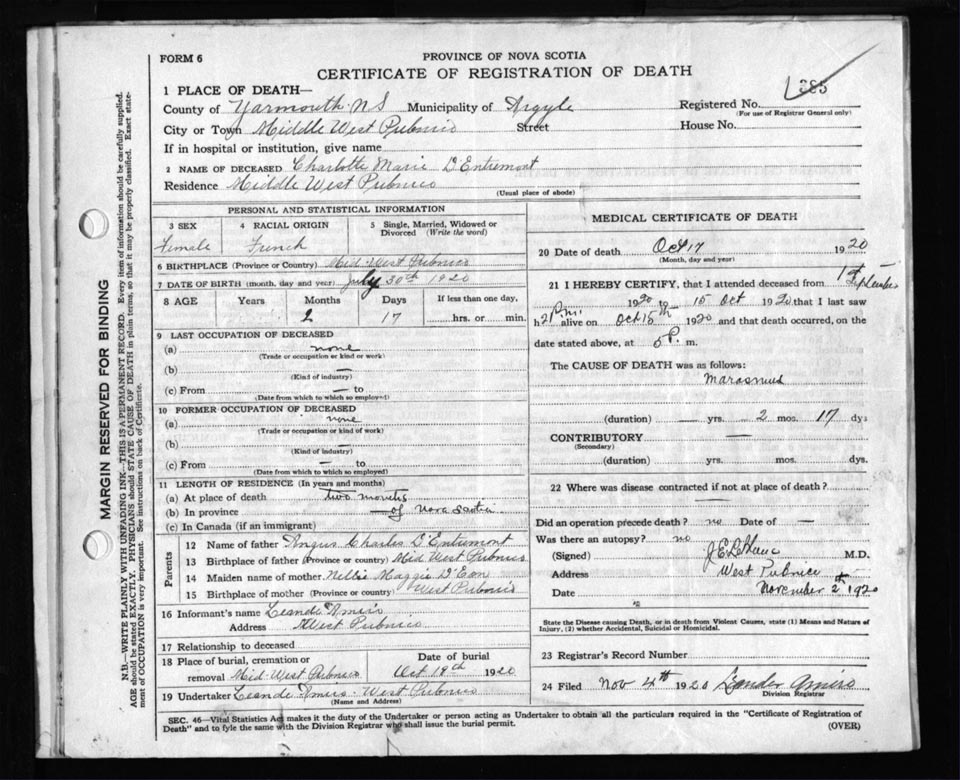 FORM 6
PROVINCE OF NOVA SCOTIA
CERTIFICATE OF REGISTRATION OF DEATH
1 PLACE OF DEATH—
County of Yarmouth. NS Municipality of Argyle Registered No. 385
(For use of Registrar General only)
City or Town Middle West Pubnico Street House No.
If in hospital or institution, give name
2 NAME OF DECEASED Charlotte Marie D'Entremont
Residence Middle West Pubnico
(Usual place of abode)
PERSONAL AND STATISTICAL INFORMATION
3 SEX 4 RACIAL ORIGIN 5 Single, Married, Widowed or
Divorced (Write the word)
Female French
6 BIRTHPLACE (Province or Country) Mid-West Pubnico
7 DATE OF BIRTH (month, day and year) July 30th 1920
8 AGE Years Months Days If less than one day,
2 17 hrs. or min.
9 LAST OCCUPATION OF DECEASED
(a) none
(Trade or occupation or kind or work)
(b) —
(Kind of industry)
(c) From — to
(Date from which to which so employed)
10 FORMER OCCUPATION OF DECEASED
(a) none
(Trade or occupation or kind of work)
(b) —
(Kind of industry)
(c) From — to
(Date from which to which so employed)
11 LENGTH OF RESIDENCE (In years and months)
(a) At place of death two months
(b) In province — of Nova Scotia
(c) In Canada (if an immigrant)
Parents
12 Name of father Angus Charles D'Entremont
13 Birthplace of father (Province or country) Mid West Pubnico
14 Maiden name of mother Nellie Maggie D'Eon
15 Birthplace of mother (Province or country) West Pubnico
16 Informant's name Leandre Amiro
Address West Pubnico
17 Relationship to deceased
18 Place of burial, cremation or Date of burial
removal Mid-West Pubnico Oct 19th 1920
19 Undertaker Leandre Amiro - West Pubnico
(Name and Address)
MEDICAL CERTIFICATE OF DEATH
20 Date of death Oct 17 1920
(Month, day and year)
21 I HEREBY CERTIFY, that I attended deceased from 1st September
1920 to 15 Oct 1920 that I last saw
h alive on Oct 15th 1920 and that death occurred, on the
date stated above, at 5 P. m.
The CAUSE OF DEATH was as follows:
Marasmus
(duration) — yrs. 2 mos. 17 dys
CONTRIBUTORY —
(Secondary)
(duration) yrs. mos. dys.
22 Where was disease contracted if not at place of death? —
Did an operation precede death? no Date of —
Was there an autopsy? no
(Signed) J E LeBlanc M.D.
Address West Pubnico
Date November 2nd 1920
State the Disease causing Death, or in death from Violent Causes, state (1) Means and Nature of
Injury, (2) whether Accidental, Suicidal or Homicidal.
23 Registrar's Record Number
24 Filed Nov 4th 1920 Leander Amiro
Division Registrar
SEC. 46—Vital Statistics Act makes it the duty of the Undertaker or person acting as Undertaker to obtain all the particulars required in the "Certificate of Registration of
Death" and to fyle the same with the Division Registrar who shall issue the burial permit. (OVER)
MARGIN RESERVED FOR BINDING
N.B.—WRITE PLAINLY WITH UNFADING INK—THIS IS A PERMANENT RECORD. Every item of information should be carefully supplied.
AGE should be stated EXACTLY. PHYSICIANS should STATE CAUSE OF DEATH in plain terms, so that it may be properly classified. Exact state-
ment of OCCUPATION is very important. See instructions on back of Certificate.